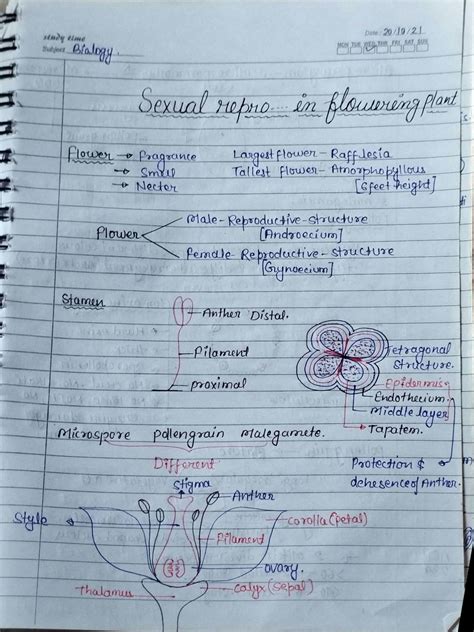 study time
Date: 20/10/21
MON TUE WED THU FRI SAT SUN
Subject: Biology.
Sexual repro.... in flowering plant
Flower → Fragrance Largest flower - Rafflesia
→ Smell Tallest flower - Amorphopyllous
→ Necter [6 feet height]
Flower
Male - Reproductive - Structure
[Androecium]
Female - Reproductive - Structure
[Gynoecium]
Stamen
Anther Distal.
Filament
proximal
Tetragonal
Structure.
Epidermis
Endothecium
Middle layer
Tapatem.
Microspore pollengrain malegamete.
Different
Protection &
dehesence of Anther.
Stigma
Anther
Style
corolla (petal)
Filament
ovary.
Thalamus
calyx (sepal)